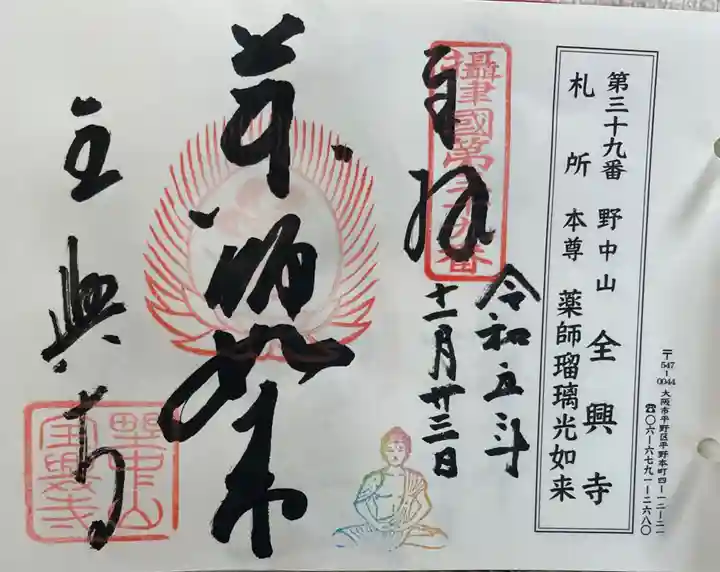 第三十九番 野中山 全興寺
札所本尊 薬師瑠璃光如来
〒547-0044 大阪市平野区平野本町四-一二-二一
☎〇六-六七九一-二六八〇
奉拝
攝津國第三十九番
令和五年
十一月廿三日
薬師如来
全興寺
野中山
全興寺